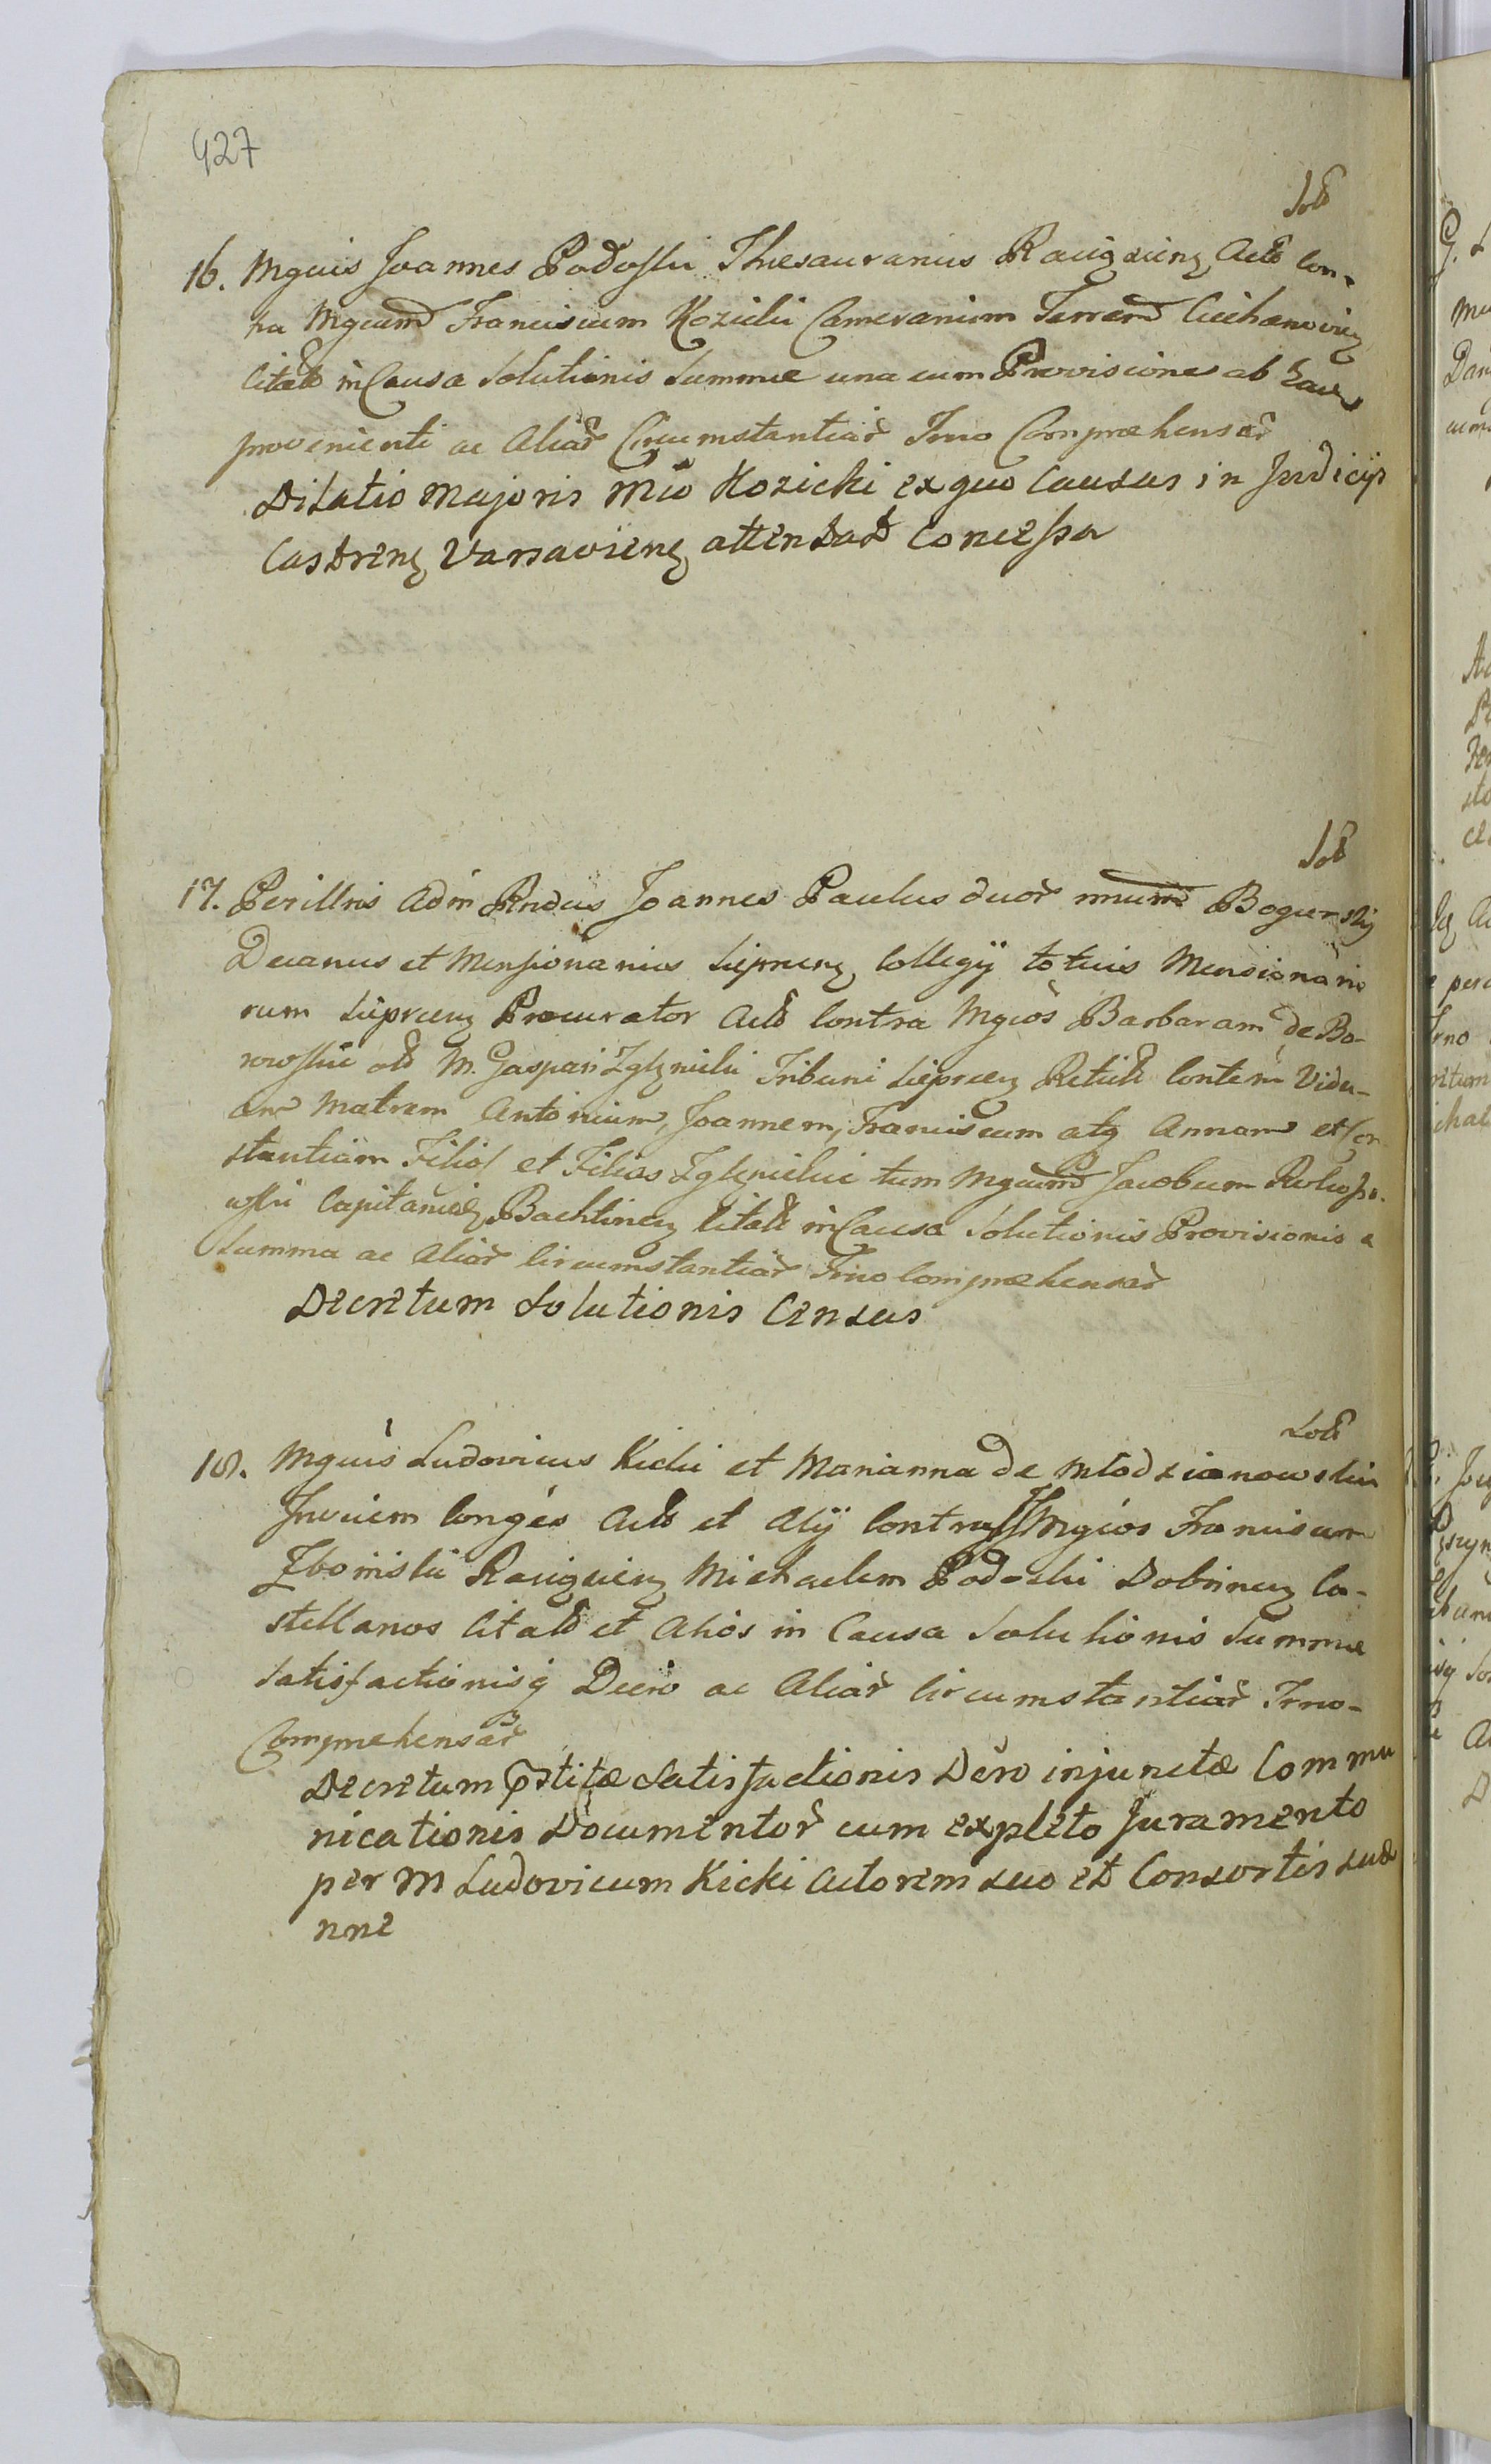 427
Sol
16. Mgcus Joannes Podoski Thesaurarius Raciązieng Act Con-
tra Mgcum Franciscum Kozicki Camerarium Terrarum Ciechanovieng
Citat in Causa Solutionis Summae una cum Provisione ab Eadem
provenienti ac Aliar Circumstantiar Trno Compraehensar
Dilatio Majoris Mco Kozicki ex quo Causas in Judicijs
Castreng Varsavieng attentat Concessa
Sol
17. Perillris Adm Rndus Joannes Paulus duor nnum Bogurskij
Decanus et Mensionarius Sieprceng Collegij totius Mensionario
rum Sieprceng Procurator Act Contra Mgcos Barbaram de Bo-
rowskie M. Gaspari Zglinicki Tribuni Sieprceng Relict Contem Vidu-
am Matrem Antonium, Joannem, Franciscum atq Annam et Con-
stantiam Filios et Filias Zglinickie tum Mgcum Jacobum
Capitaneum Bachtineng Citat in Causa Solutionis Provisionis a
Summa ac Aliar Circumstantiar Trno Compraehensar
Decretum Solutionis Census
Sol
18. Mgcus Ludovicus Kicki et Marianna de Młodzianowskie
Invicem Conges Act et Alij Contra Mgcos Franciscum
Zboinski Raciążeng Michaelem Podoski Dobrineng Ca-
stellanos Citat et Alios in Causa Solutionis Summae
Satisfactionisq Decro ac Aliar Circumstantiar Trno-
Compraehensar
Decretum pstitae Satisfactionis Dcro injunctae Commu
nicationis Documentor cum expleto Juramento
per M Ludovicum Kicki Actorem suo et Consortis suae
nne